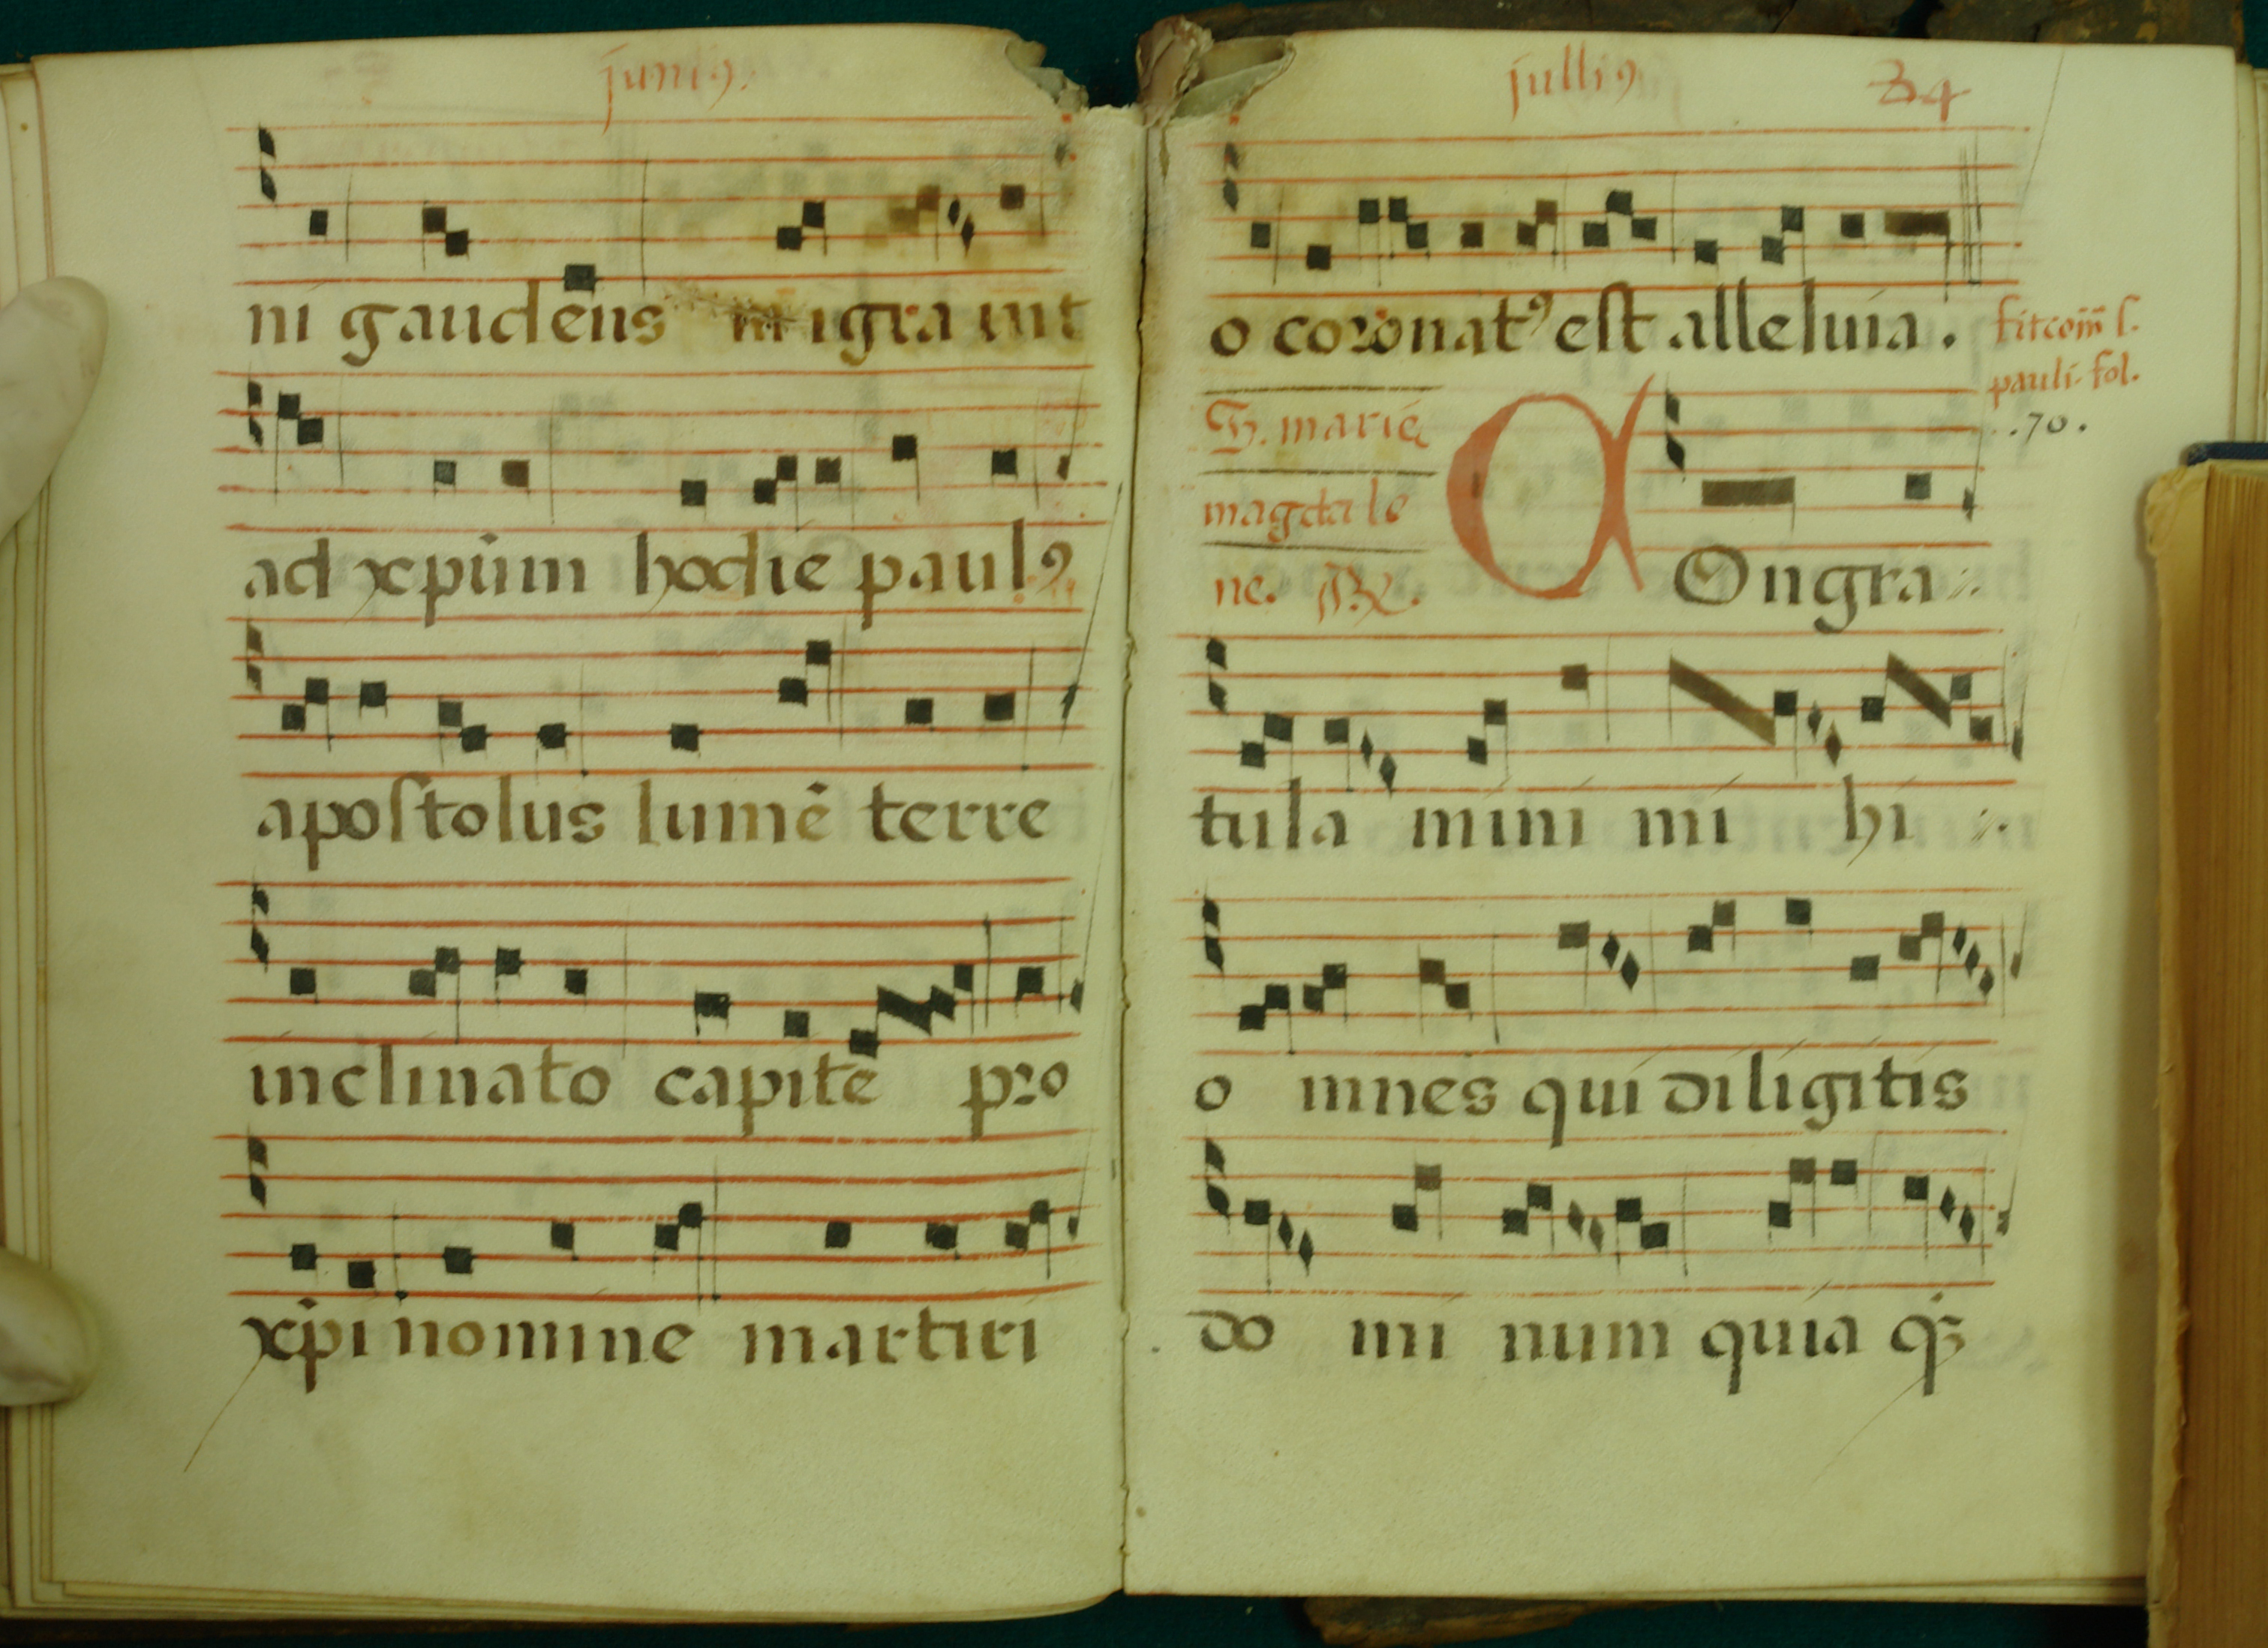 juniꝯ.
ni gaudens migrauit
ad xpūm hodie paulꝯ
apostolus lumē terre
inclinato capite pro
xpi nomine martiri
julliꝯ 34
o coronatꝯ est alleluia.
fit com̄ s.
pauli. fol.
.70.
marie
magdale
ne. ꝶ.
C Ongra
tula mini mi hi
o mnes qui diligitis
do mi num quia qꝫ